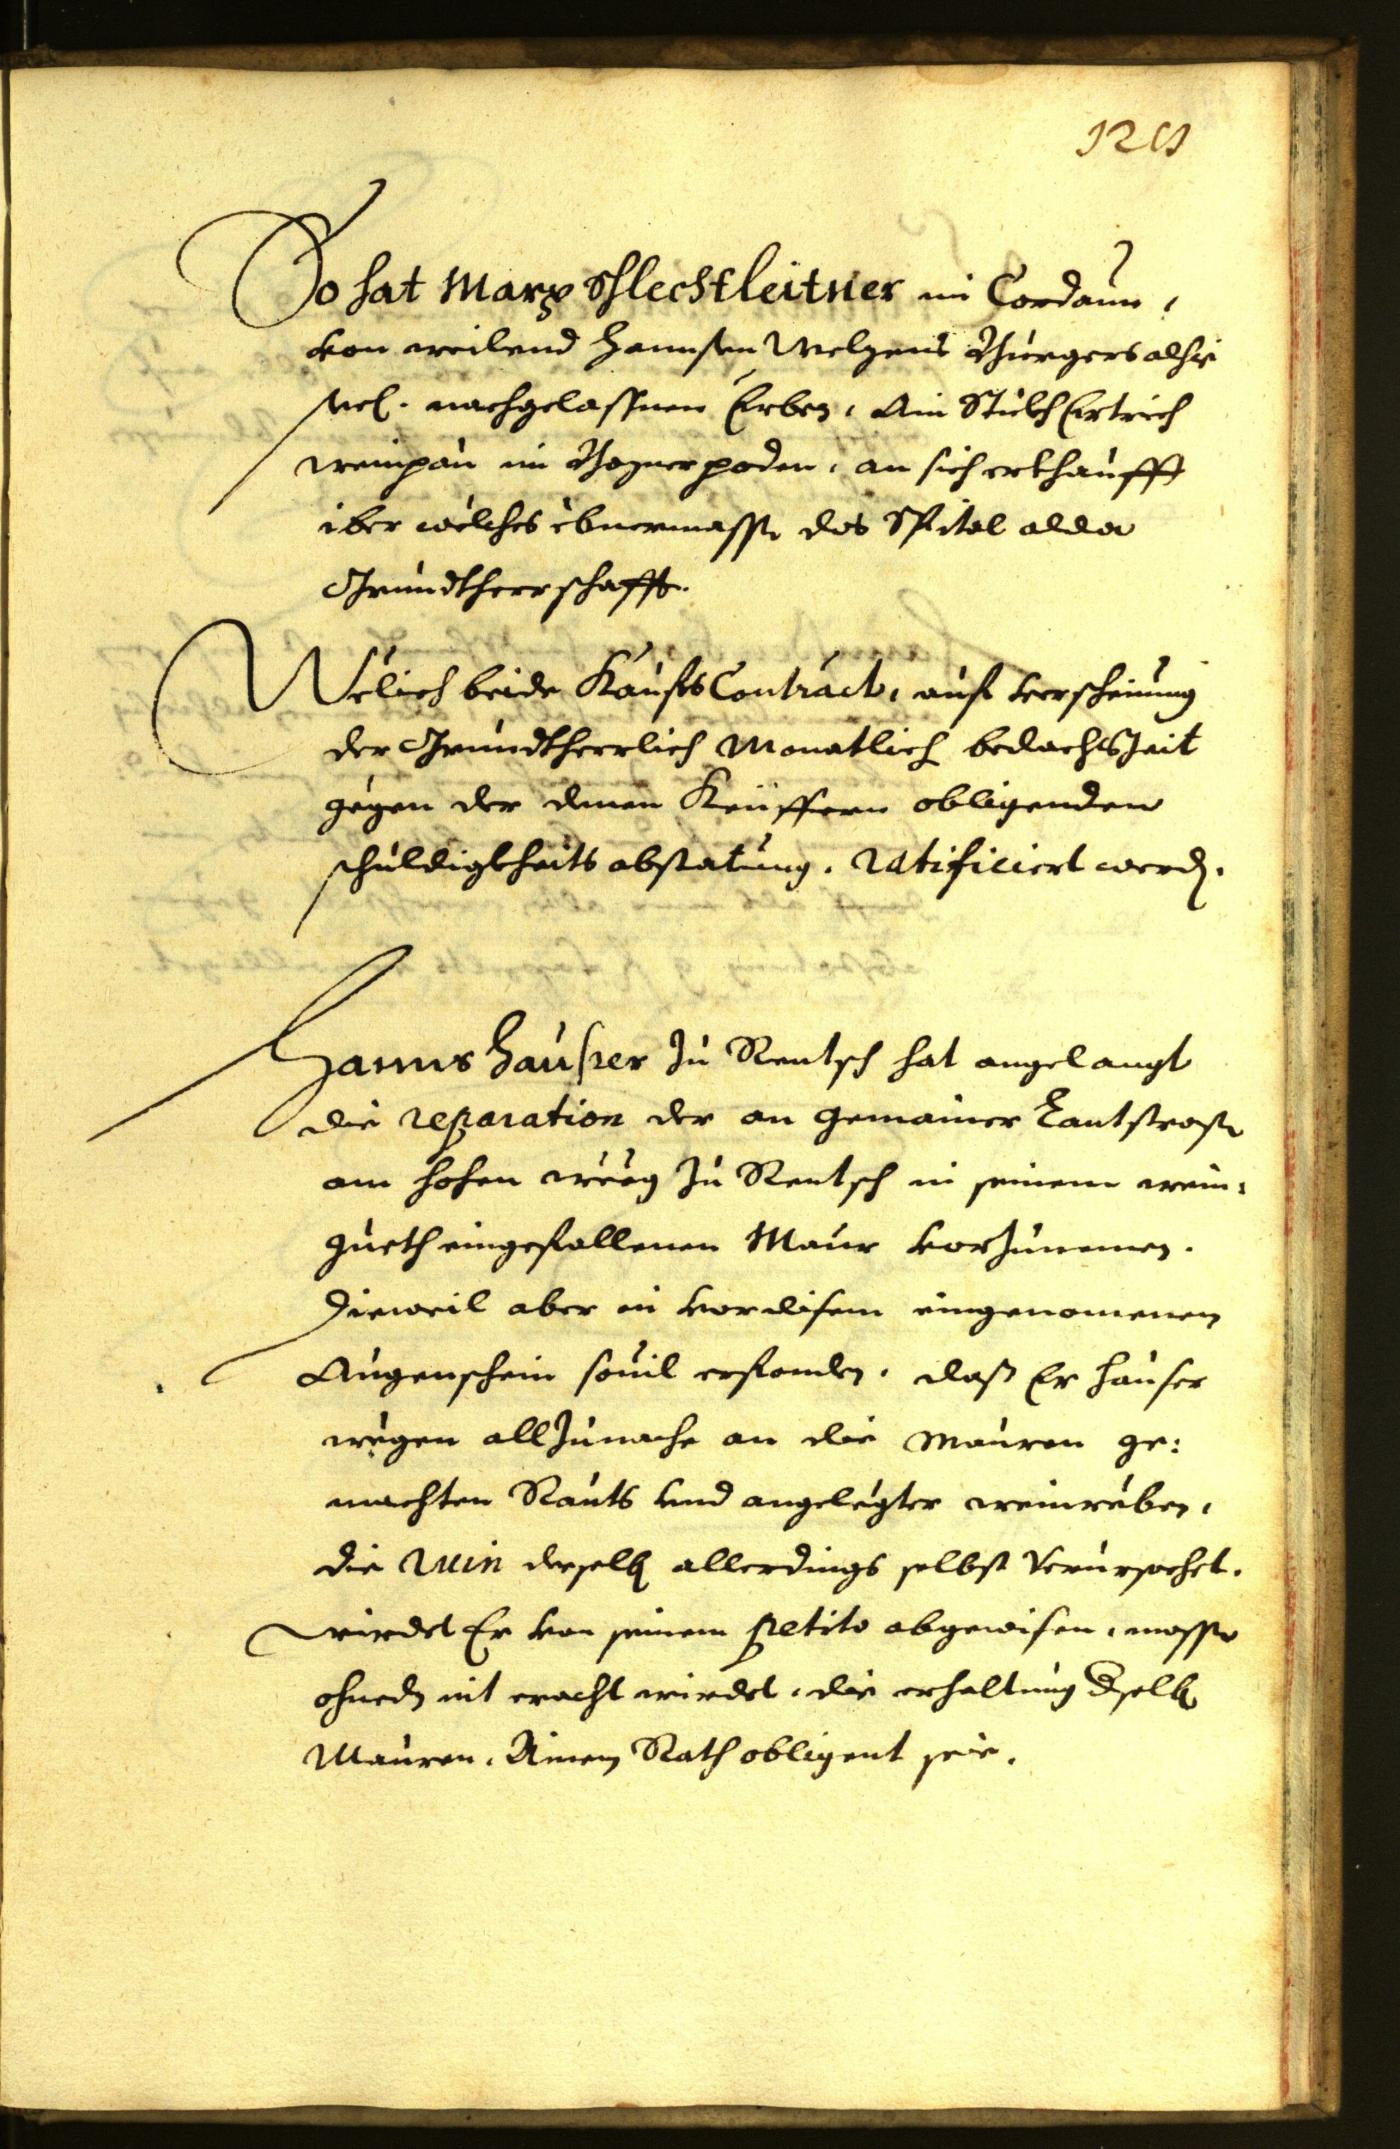 So hat Marx Schlechtleitner im Cardaun,
von weilend Hannsen Melzens Burgers alhie
seel. nachgelassnen Erben, Ain Stuckh Ertrich
weinpau im Poznerpoden, an sich erkhaufft
iber welches ebnermassen das Spital alda
Grundtherrschafft.
Welich beide KaufsContract, auf verscheinung
der Grundtherrlich Monatlich bedachtszeit
gegen der denen Keüffern obligenden
schuldigkheits abstatung, ratificiert werden.
Hanns Hauser zu Rentsch hat angelangt
die reparation der an gemainer Lantstrasse
am hohen weeg zu Rentsch in seinem wein-
gueth eingefallenen Maur vorzunemen.
Dieweil aber in vor disem eingenomenem
Augenschein sovil erfonden, dass Er Hauser
wegen allzunache an die Mauren ge:
machten Rauts und angelegter weinreben,
die ruin derselben allerdings selbst verursachet.
wirdet Er von seinem petito abgewisen, massen
ohnedem nit eracht wirdet, die erhaltung derselben
Mauren, Ainem Rath obligent seie.